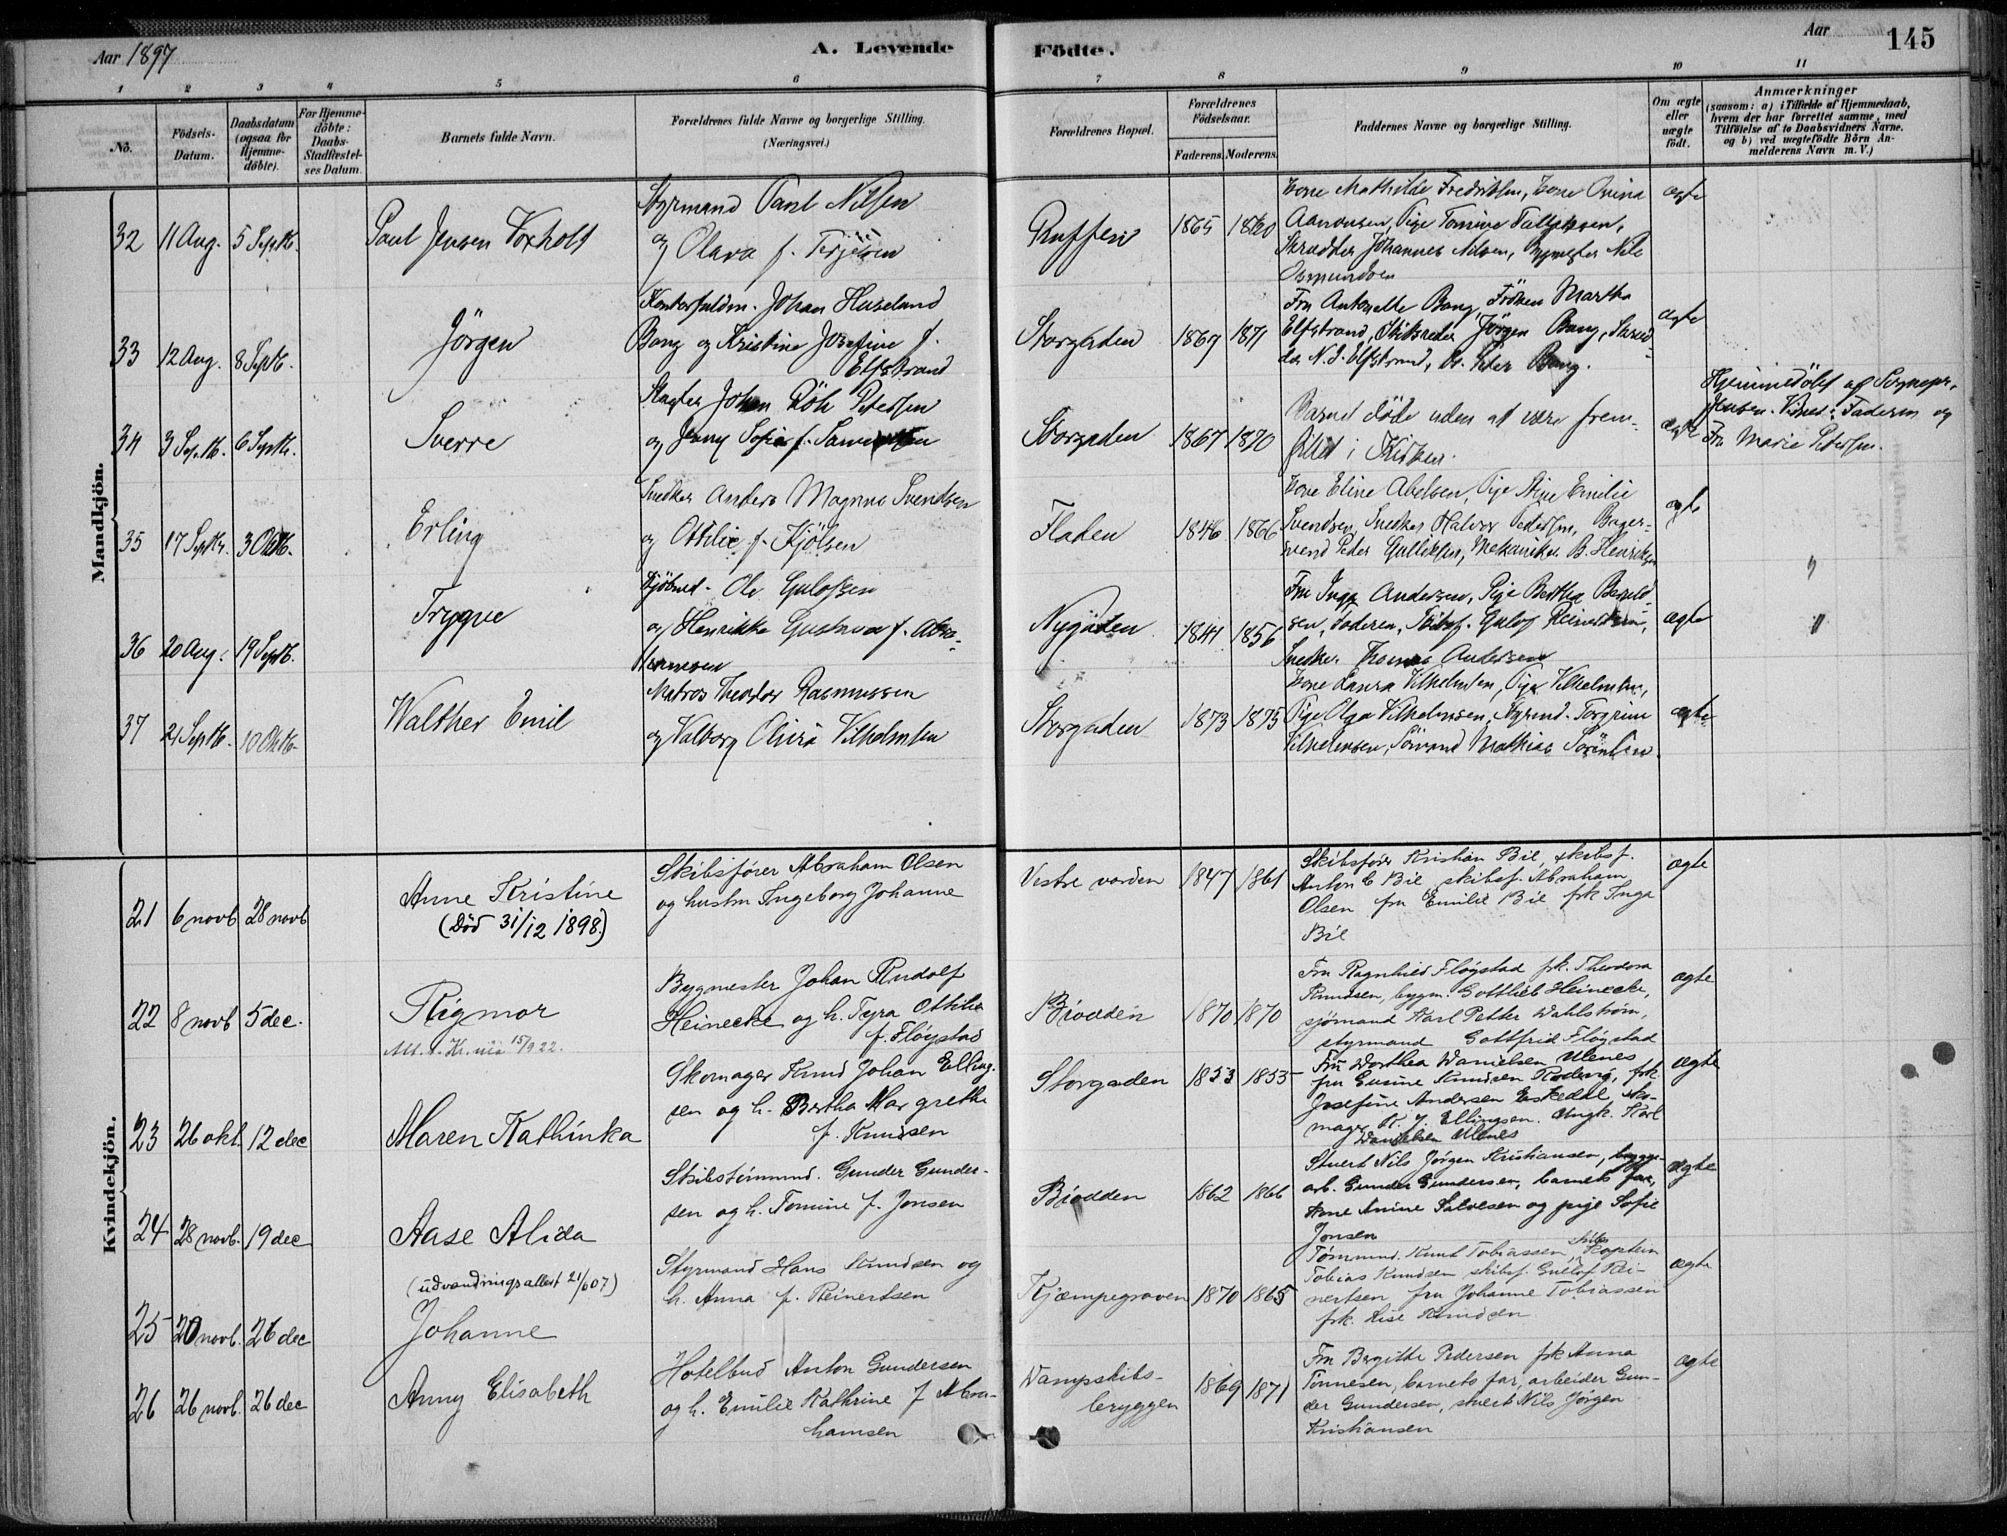 Aar 1897
A. Levende
Födte.
Aar
145
1 2 3 4 5 6 7 8 9 10 11
No.
Födsels-Datum.
Daabsdatum (ogsaa for Hjemme-döbte).
For Hjemme-döbte: Daabs-Stadfæstel-ses Datum.
Barnets fulde Navn.
Forældrenes fulde Navne og borgerlige Stilling.
(Næringsvei.)
Forældrenes Bopæl.
Forældrenes Födselsaar.
Faderens. Moderens.
Faddernes Navne og borgerlige Stilling.
Om ægte eller uægte födt.
Anmærkninger
(saasom: a) i Tilfælde af Hjemmedaab, hvem der har forrettet samme, med Tilföielse af to Daabsvidners Navne. og b) ved uægtefödte Börn Anmelderens Navn m. V.)
Mandkjön.
32 11 Aug. 5 Septb. Paul Jensen Voxholt
Styrmand Paul Nilsen
og Olava f. Terjesen
1865 1860
Kone Mathilde Fredriksen, Kone
Aanonsen, Pige Tomine
Skrædder Johannes Nilsen, Bygmester Nils
Osmundsen
ægte
33 12 Aug. 8 Septb. Jörgen
Johan Huseland
Bang og Kristine Josefine f.
Elfstrand
Storgaden 1869 1871
Fru Antonette Bang, Fröken Martha
Elfstrand, Skibsreder Jörgen Bang, Skræd-
der N. S. Elfstrand, Peter Bang.
ægte
34 3 Septb. 6 Septb. Sverre
Slagter Johan Petersen
og Jenny Sofie f.
Storgaden 1867 1870
Barnet døde uden at være frem-
stillet i Kirken.
ægte
Hjemmedöbt af Sognepr.
Jensen. Vidner: Faderen og
Fru Marie Petersen.
35 17 Septb. 3 Oktb. Erling
Snedker Anders Magnus Svendsen
og Othilie f. Kjölsen
Fladen 1846 1866
Kone Eline Abelsen, Pige Stine Emilie
Svendsen, Snedker Halvor Pedersen, Bager-
svend Peder Gulliksen, Mekaniker B. Henriksen
ægte
"
36 20 Aug. 19 Septb. Trygve
Kjöbmd. Ole Gulofsen
og Henrikke Gustava f. Abra-
hamsen
Nygaden 1841 1856
Fru Inga Andersen, Pige Berthe
sen, Faderen, Skibsf. Gulof Reinertsen,
Snedker Thomas Andersen
ægte
"
37 21 Septb. 10 Oktb. Walther Emil
Matros Theodor Rasmussen
og Valborg Olivia Vilhelmsen
Storgaden 1873 1875
Kone Laura Vilhelmsen, Pige Vilhelmsen,
Pige Olga Vilhelmsen, Styrmd. Torgrim
Vilhelmsen, Mathias Sörensen.
ægte
Kvindekjön.
21 6 novb 28 novb
Anne Kristine
(Död 31/12 1898.)
Skibsfører Abraham Olsen
og hustru Ingeborg Johanne
Vestre varden 1847 1861
Skibsfører Kristian Bie, skibsf.
Anton C Bie, skibsf. Abraham
Olsen fru Emilie Bie frk Inga
Bie
ægte
22 8 novb 5 dec.
Rigmor
Att. t. Kr.nia 15/9 22.
Bygmester Johan Rudolf
Heinecke og h. Tyra Othilie
f. Fløystad
Brodden 1870 1870
Fru Ragnhild Fløystad frk. Theodora
Knudsen, bygm. Gottlieb Heinecke,
sjömand Karl Petter Wahlstrøm,
styrmand Gottfrid Fløystad
ægte
23 26 okt 12 dec Maren Kathinka
Skomager Knud Johan Elling-
sen og h. Bertha Margrethe
f. Knudsen
Storgaden 1853 1853
Fru Dorthea Danielsen Ulenes
fru Gusine Knudsen frk
Josefine Andersen Eskedal, sko-
mager K. J. Ellingsen. Karl
Danielsen Ulenes
ægte
24 28 novb. 19 dec Aase Alida
Skibstømmmd. Gunder Gunder-
sen og h. Tomine f. Jonsen
Brodden 1862 1866
Stuert Nils Jörgen Kristiansen, brygge-
arb. Gunder Gundersen, barnets far,
kone Anine Salvesen og pige Sofie
Jonsen
ægte
25 20 novb. 26 dec
(udvandringsattest 21/6 07)
Johanne
Styrmand Hans Knudsen og
h. Anna f. Reinertsen
Kjæmpegraven 1870 1865
Tømmmd. Knut Tobiassen, Skibs Kaptein
Tobias Knudsen skibsf. Gullof Rei-
nertsen fru Johanne Tobiassen
frk. Lise Knudsen
ægte
26 26 novb. 26 dec Anny Elisabeth
Hotelbud Anton Gundersen
og h. Emilie Kathrine f Abra-
hamsen
Dampskibs-
bryggen 1869 1871
Fru Birgitte Pedersen frk Anna
Tönnesen, barnets far, arbeider Gun-
der Gundersen, stuert Nils Jørgen
Kristiansen
ægte